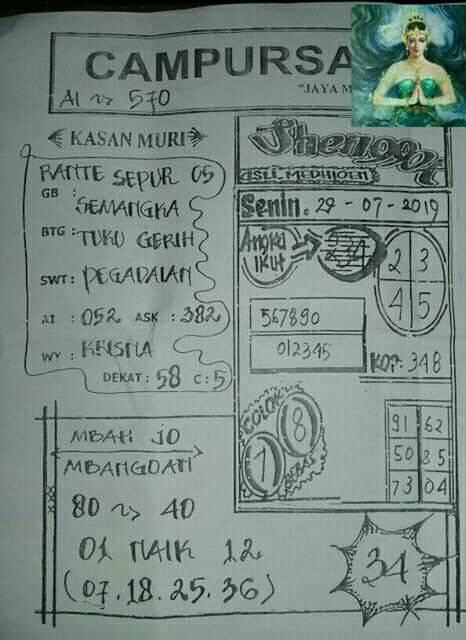 CAMPURSA
"JAYA M
AI ~> 570
KASAN MURI
RANTE SEPUR 05
GB :
SEMANGKA
BTG : TUKU GERIH
SWT : PEGADAIAN
AI : 052 ASK : 382
WY : KRISNA
DEKAT : 58 C : 5
MBAH JO
MBANGDAN
80 ~> 40
01 NAIK 12
(07.18.25.36)
Shenggot
ASLI
Senin. 29 - 07 - 2019
Angka
IKUT
2 3
4 5
567890
012345
KOP: 348
COLOK
1 8
BEBAS
91 62
50 85
73 04
34